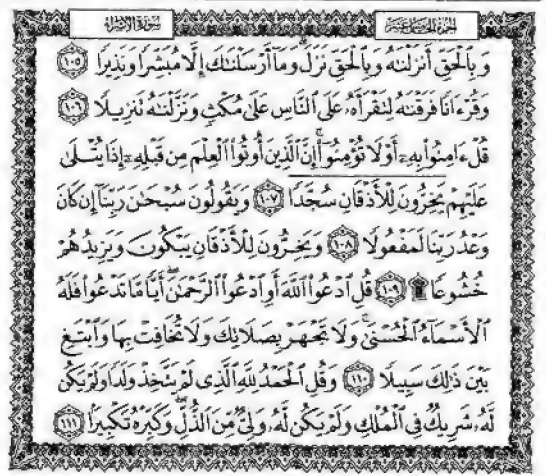 سورة الإسراء
الجزء الخامس عشر
وَبِالْحَقِّ أَنزَلْنَٰهُ وَبِالْحَقِّ نَزَلَ ۗ وَمَآ أَرْسَلْنَٰكَ إِلَّا مُبَشِّرًا وَنَذِيرًا ١٠٥
وَقُرْءَانًا فَرَقْنَٰهُ لِتَقْرَأَهُۥ عَلَى النَّاسِ عَلَىٰ مُكْثٍ وَنَزَّلْنَٰهُ تَنزِيلًا ١٠٦
قُلْ ءَامِنُوا۟ بِهِۦٓ أَوْ لَا تُؤْمِنُوٓا۟ ۚ إِنَّ الَّذِينَ أُوتُوا۟ الْعِلْمَ مِن قَبْلِهِۦٓ إِذَا يُتْلَىٰ
عَلَيْهِمْ يَخِرُّونَ لِلْأَذْقَانِ سُجَّدًا ١٠٧ وَيَقُولُونَ سُبْحَٰنَ رَبِّنَآ إِن كَانَ
وَعْدُ رَبِّنَا لَمَفْعُولًا ١٠٨ وَيَخِرُّونَ لِلْأَذْقَانِ يَبْكُونَ وَيَزِيدُهُمْ
خُشُوعًا ۩ ١٠٩ قُلِ ادْعُوا۟ اللَّهَ أَوِ ادْعُوا۟ الرَّحْمَٰنَ ۖ أَيًّا مَّا تَدْعُوا۟ فَلَهُ
الْأَسْمَآءُ الْحُسْنَىٰ ۚ وَلَا تَجْهَرْ بِصَلَاتِكَ وَلَا تُخَافِتْ بِهَا وَابْتَغِ
بَيْنَ ذَٰلِكَ سَبِيلًا ١١٠ وَقُلِ الْحَمْدُ لِلَّهِ الَّذِى لَمْ يَتَّخِذْ وَلَدًا وَلَمْ يَكُن
لَّهُۥ شَرِيكٌ فِى الْمُلْكِ وَلَمْ يَكُن لَّهُۥ وَلِىٌّ مِّنَ الذُّلِّ ۖ وَكَبِّرْهُ تَكْبِيرًا ١١١